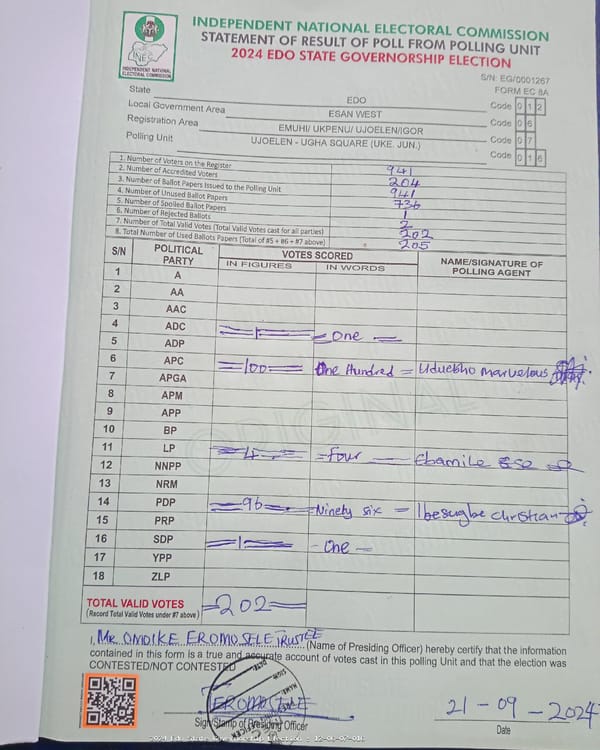 INDEPENDENT NATIONAL ELECTORAL COMMISSION
STATEMENT OF RESULT OF POLL FROM POLLING UNIT
2024 EDO STATE GOVERNORSHIP ELECTION
INEC
INDEPENDENT NATIONAL ELECTORAL COMMISSION
S/N: EG/0001267
FORM EC 8A
State EDO Code 0 1 2
Local Government Area ESAN WEST Code 0 6
Registration Area EMUHI/ UKPENU/ UJOELEN/IGOR Code 0 7
Polling Unit UJOELEN - UGHA SQUARE (UKE. JUN.) Code 0 1 6
1. Number of Voters on the Register 941
2. Number of Accredited Voters 204
3. Number of Ballot Papers Issued to the Polling Unit 941
4. Number of Unused Ballot Papers 736
5. Number of Spoiled Ballot Papers 1
6. Number of Rejected Ballots 2
7. Number of Total Valid Votes (Total Valid Votes cast for all parties) 202
8. Total Number of Used Ballots Papers (Total of #5 + #6 + #7 above) 205
S/N POLITICAL PARTY VOTES SCORED NAME/SIGNATURE OF POLLING AGENT
IN FIGURES IN WORDS
1 A
2 AA
3 AAC
4 ADC 1 One
5 ADP
6 APC 100 One Hundred Uduebho marvelous
7 APGA
8 APM
9 APP
10 BP
11 LP 4 four Ebamile ese
12 NNPP
13 NRM
14 PDP 96 Ninety six Ibesugbe christian
15 PRP
16 SDP 1 One
17 YPP
18 ZLP
ORIGINAL
TOTAL VALID VOTES 202
(Record Total Valid Votes under #7 above)
I, MR. OMOIKE EROMOSELE TRUSTEE (Name of Presiding Officer) hereby certify that the information
contained in this form is a true and accurate account of votes cast in this polling Unit and that the election was
CONTESTED/NOT CONTESTED
EROMOSELE
Sign/Stamp of Presiding Officer
21-09-2024
Date